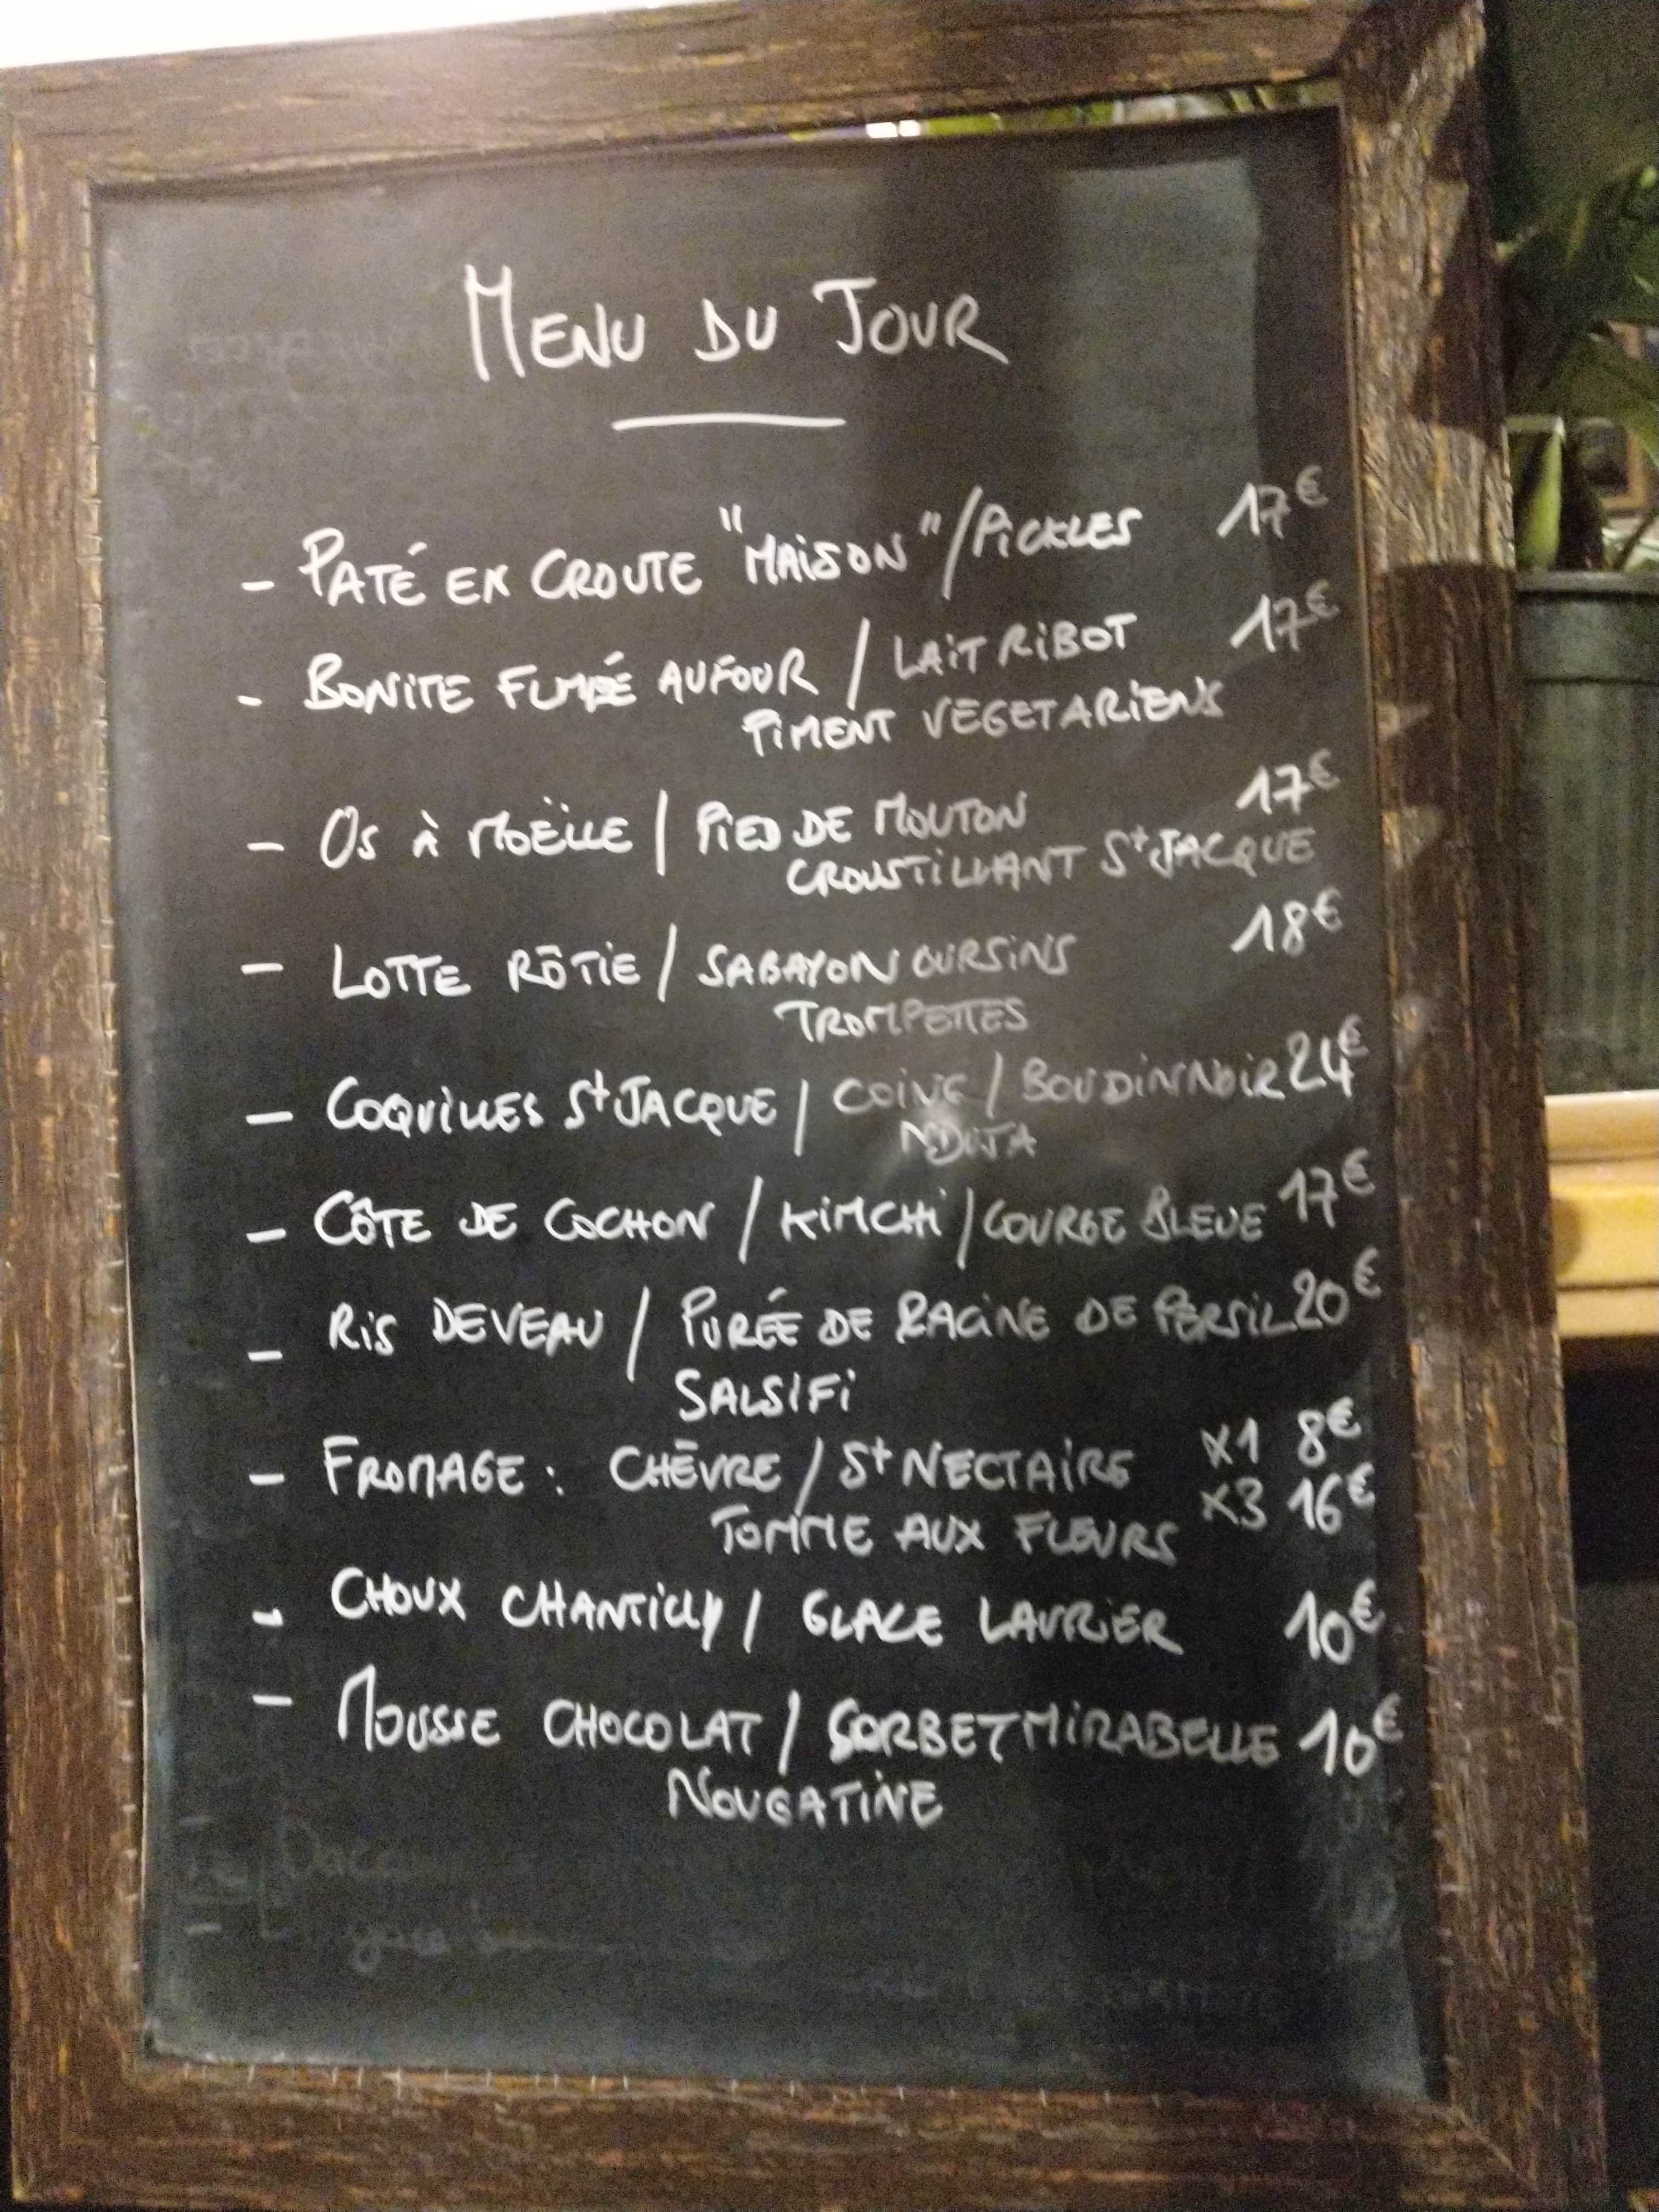 MENU DU JOUR
- PATÉ EN CROUTE "MAISON" / PICKLES 17€
- BONITE FUMÉ AU FOUR / LAIT RIBOT 17€
PIMENT VEGETARIENS
- OS À MOËLLE / PIED DE MOUTON 17€
CROUSTILLANT St JACQUE
- LOTTE RÔTIE / SABAYON OURSINS 18€
TROMPETTES
- COQUILLES St JACQUE / COING / BOUDIN NOIR 24€
NDUJA
- CÔTE DE COCHON / KIMCHI / COURGE BLEUE 17€
- RIS DE VEAU / PURÉE DE RACINE DE PERSIL 20€
SALSIFI
- FROMAGE : CHÈVRE / St NECTAIRE X1 8€
TOMME AUX FLEURS X3 16€
- CHOUX CHANTILLY / GLACE LAURIER 10€
- MOUSSE CHOCOLAT / SORBET MIRABELLE 10€
NOUGATINE